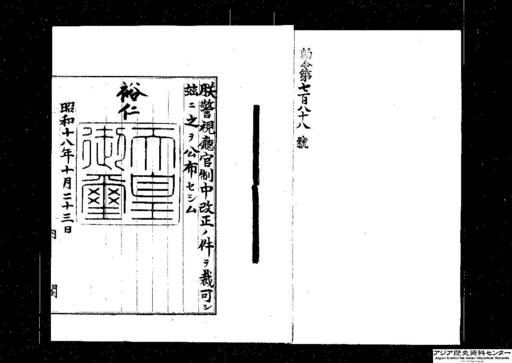 勅令第七百八十八號
朕警視廳官制中改正ノ件ヲ裁可シ
玆ニ之ヲ公布セシム
裕仁
天皇御璽
昭和十八年十月二十三日
内閣
アジア歴史資料センター
Japan Center for Asian Historical Records